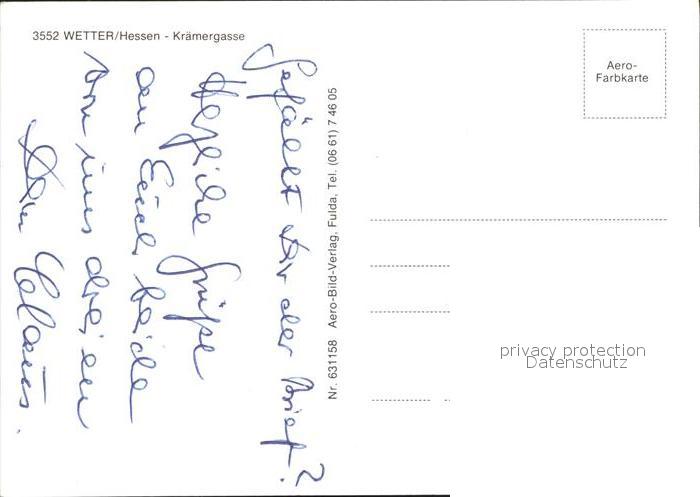 3552 WETTER/Hessen - Krämergasse
Gefällt Dir der Brief?
Herzliche Grüße
an Euch beide
von uns dreien
Dein Klaus.
Nr. 631158 Aero-Bild-Verlag, Fulda, Tel. (06 61) 7 46 05
Aero-
Farbkarte
privacy protection
Datenschutz